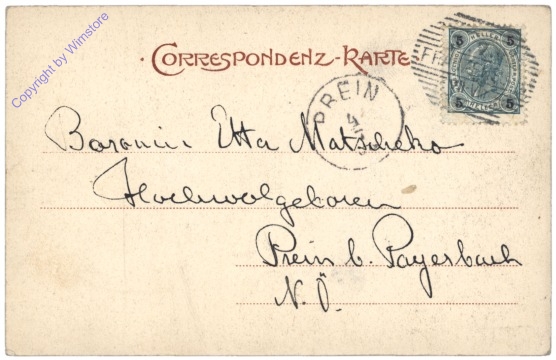 Copyright by Wimstore
CORRESPONDENZ-KARTE
5 HELLER 5
5 HELLER 5
PREIN
Baronin Etta Matscheko
Hochwolgeboren
Prein b. Payerbach
N.Ö.